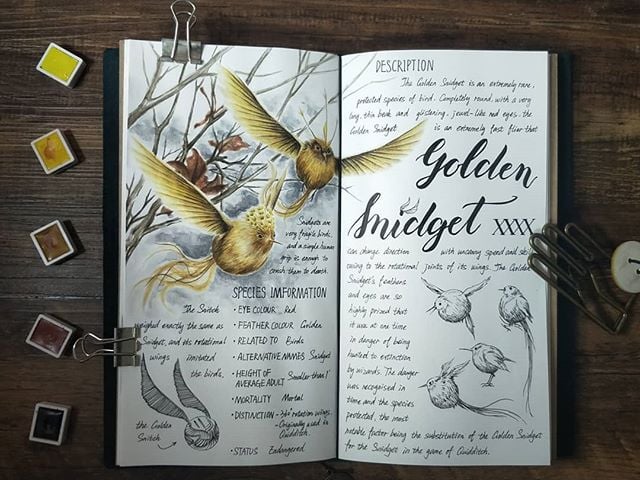 Snidgets are
very fragile birds,
and a simple human
grip is enough to
crush them to death.
SPECIES IMFORMATION
• EYE COLOUR Red
• FEATHER COLOUR Golden
• RELATED TO Birds
• ALTERNATIVE NAMES Snidget
• HEIGHT OF
AVERAGE ADULT Smaller than 1'
• MORTALITY Mortal
• DISTINCTION - 360° rotation wings.
- Originally used in
Quidditch.
• STATUS Endangered
The Snitch
weighed exactly the same as
Snidget, and its rotational
wings imitated
the birds.
the Golden
Snitch
DESCRIPTION
The Golden Snidget is an extremely rare,
protected species of bird. Completely round, with a very
long, thin beak and glistening, jewel-like red eyes, the
Golden Snidget is an extremely fast flier that
Golden
Snidget XXXX
can change direction with uncanny speed and skill
owing to the rotational joints of its wings. The Golden
Snidget's feathers
and eyes are so
highly prized that
it was at one time
in danger of being
hunted to extinction
by wizards. The danger
was recognised in
time and the species
protected, the most
notable factor being the substitution of the Golden Snidget
for the Snidget in the game of Quidditch.